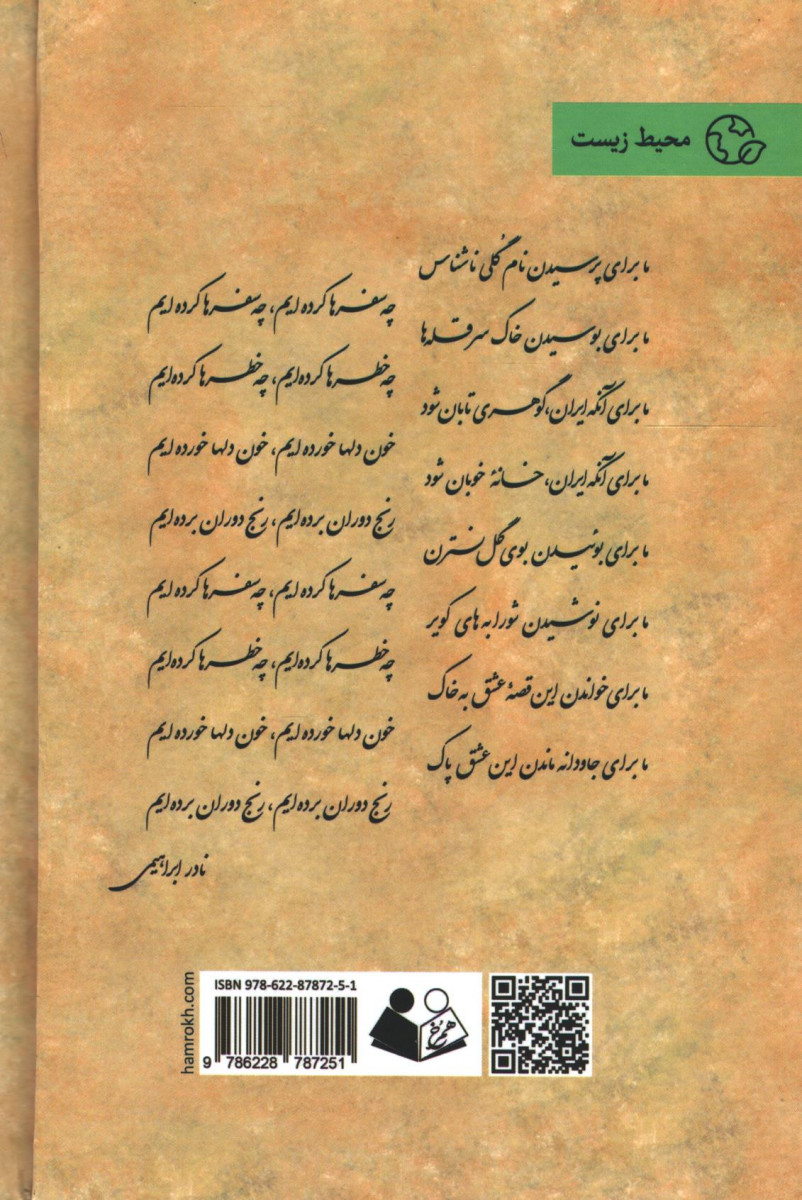 محیط زیست
ما برای پرسیدن نام گُلی ناشناس
چه سفرها کرده ایم، چه سفرها کرده ایم
ما برای بوسیدن خاک سر قله ها
چه خطرها کرده ایم، چه خطرها کرده ایم
ما برای آنکه ایران، گوهری تابان شود
خون دلها خورده ایم، خون دلها خورده ایم
ما برای آنکه ایران، خانهٔ خوبان شود
رنج دوران برده ایم، رنج دوران برده ایم
ما برای بوئیدن بوی گل نسترن
چه سفرها کرده ایم، چه سفرها کرده ایم
ما برای نوشیدن شورابه های کویر
چه خطرها کرده ایم، چه خطرها کرده ایم
ما برای خواندن این قصهٔ عشق به خاک
خون دلها خورده ایم، خون دلها خورده ایم
ما برای جاودانه ماندن این عشق پاک
رنج دوران برده ایم، رنج دوران برده ایم
نادر ابراهیمی
hamrokh.com
ISBN 978-622-87872-5-1
9 786228 787251
همرخ